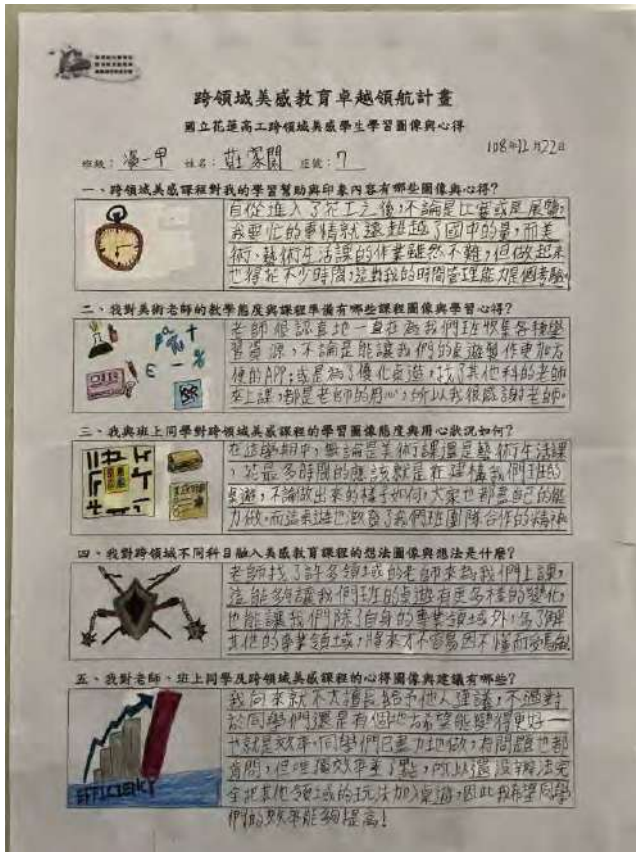 跨領域美感教育卓越領航計畫
國立花蓮高工跨領域美感學生學習圖像與心得
108年11月22日
班級：一甲 姓名：莊家閎 座號：7
一、跨領域美感課程對我的學習幫助與印象內容有哪些圖像與心得？
自從進入了花工之後，不論是比賽或是展覽，
我要忙的事情就遠超越了國中的量，而美
術、藝術生活課的作業雖然不難，但做起來
也得花不少時間，這對我的時間管理能力是個考驗。
二、我對美術老師的教學態度與課程準備有哪些課程圖像與學習心得？
老師很認真地一直在為我們班收集各種學
習資源，不論是能讓我們的桌遊製作更加方
便的APP；或是為了優化桌遊，找了其他科的老師
來上課，都是老師的用心，所以我很感謝老師。
三、我與班上同學對跨領域美感課程的學習圖像態度與用心狀況如何？
在這學期中，無論是美術課還是藝術生活課
，花最多時間的應該就是在建構我們班的
桌遊，不論做出來的樣子如何，大家也都盡自己的能
力做，而這桌遊也激發了我們班團隊合作的精神
四、我對跨領域不同科目融入美感教育課程的想法圖像與想法是什麼？
老師找了許多領域的老師來為我們上課，
這能夠讓我們班的桌遊有更多樣的變化，
也能讓我們除了自身的專業領域外，多了解
其他的專業領域，將來才不容易因不懂而受
五、我對老師、班上同學及跨領域美感課程的心得圖像與建議有哪些？
EFFICIENCY
我向來就不太擅長給予他人建議，不過對
於同學們還是有個地方希望能變得更好——
也就是效率，同學們已盡力地做，有問題也都
肯問，但唯獨效率差了點，所以還沒辦法完
全把其他領域的玩法加入桌遊，因此我希望同學
們的效率能夠提高！